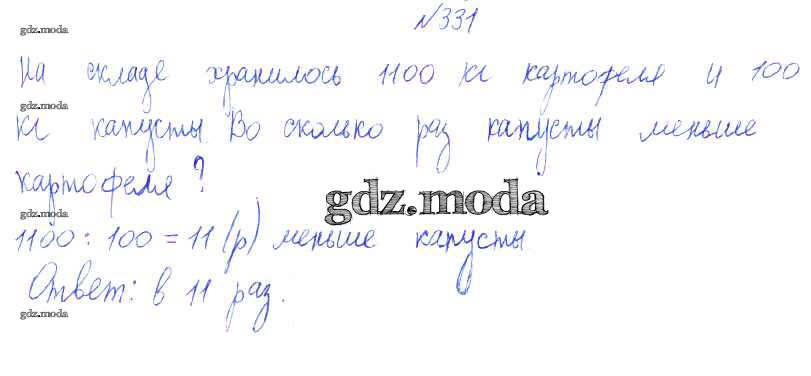 №331
gdz.moda
На складе хранилось 1100 кг картофеля и 100
gdz.moda
кг капусты. Во сколько раз капусты меньше
картофеля?
gdz.moda
gdz.moda
1100 : 100 = 11 (р) меньше капусты
Ответ: в 11 раз.
gdz.moda